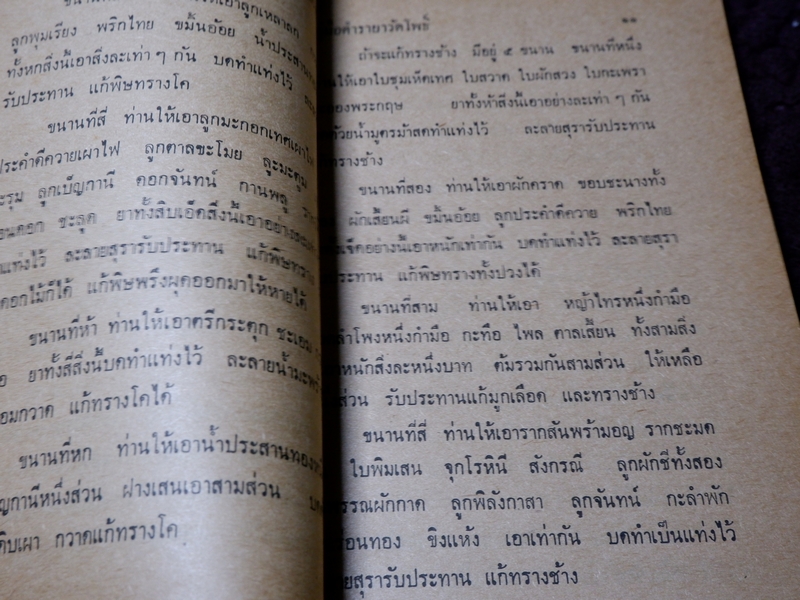 ลูกพุมเรียง พริกไทย ขมิ้นอ้อย น้ำประสาน
ทั้งหกสิ่งนี้เอาสิ่งละเท่า ๆ กัน บดทำแท่งไว้
รับประทาน แก้พิษทรางโค
ขนานที่สี่ ท่านให้เอาลูกมะกอกเทศเผาไฟ
ประคำดีควายเผาไฟ ลูกตาลขะโมย ลูะมะตูม
ะรุม ลูกเบ็ญกานี ดอกจันทน์ กานพลู
ชะลูด ยาทั้งสิบเอ็ดสิ่งนี้เอาอย่างละ
แท่งไว้ ละลายสุรารับประทาน แก้พิษทราง
ดอกไม้ก็ได้ แก้พิษพรึงผุดออกมาให้หายได้
ขนานที่ห้า ท่านให้เอาครีกระดูก ชะเอม
อ ยาทั้งสี่สิ่งนี้บดทำแท่งไว้ ละลายน้ำมะพร้า
อมกวาด แก้ทรางโคได้
ขนานที่หก ท่านให้เอาน้ำประสานทอง
ญกานีหนึ่งส่วน ฝางเสนเอาสามส่วน
ดิบเผา กวาดแก้ทรางโค
อตำรายาวัดโพธิ์ ๑๑
ถ้าจะแก้ทรางช้าง มีอยู่ ๕ ขนาน ขนานที่หนึ่ง
นให้เอาใบชุมเห็ดเทศ ใบสวาด ใบผักสวง ใบกะเพรา
องพระกฤษ ยาทั้งห้าสิ่งนี้เอาอย่างละเท่า ๆ กัน
ด้วยน้ำมูตรม้าสดทำแท่งไว้ ละลายสุรารับประทาน
ทรางช้าง
ขนานที่สอง ท่านให้เอาผักคราด ขอบชะนางทั้ง
ผักเสี้ยนผี ขมิ้นอ้อย ลูกประคำดีควาย พริกไทย
เจ็ดอย่างนี้เอาหนักเท่ากัน บดทำแท่งไว้ ละลายสุรา
ประทาน แก้พิษทรางทั้งปวงได้
ขนานที่สาม ท่านให้เอา หญ้าไทรหนึ่งกำมือ
ลำโพงหนึ่งกำมือ กะทือ ไพล ตาลเสี้ยน ทั้งสามสิ่ง
หนักสิ่งละหนึ่งบาท ต้มรวมกันสามส่วน ให้เหลือ
ส่วน รับประทานแก้มูกเลือด และทรางช้าง
ขนานที่สี่ ท่านให้เอารากสันพร้ามอญ รากชะมด
ใบพิมเสน จุกโรหินี สังกรณี ลูกผักชีทั้งสอง
รรณผักกาด ลูกพิลังกาสา ลูกจันทน์ กะลำพัก
อนทอง ขิงแห้ง เอาเท่ากัน บดทำเป็นแท่งไว้
ยสุรารับประทาน แก้ทรางช้าง